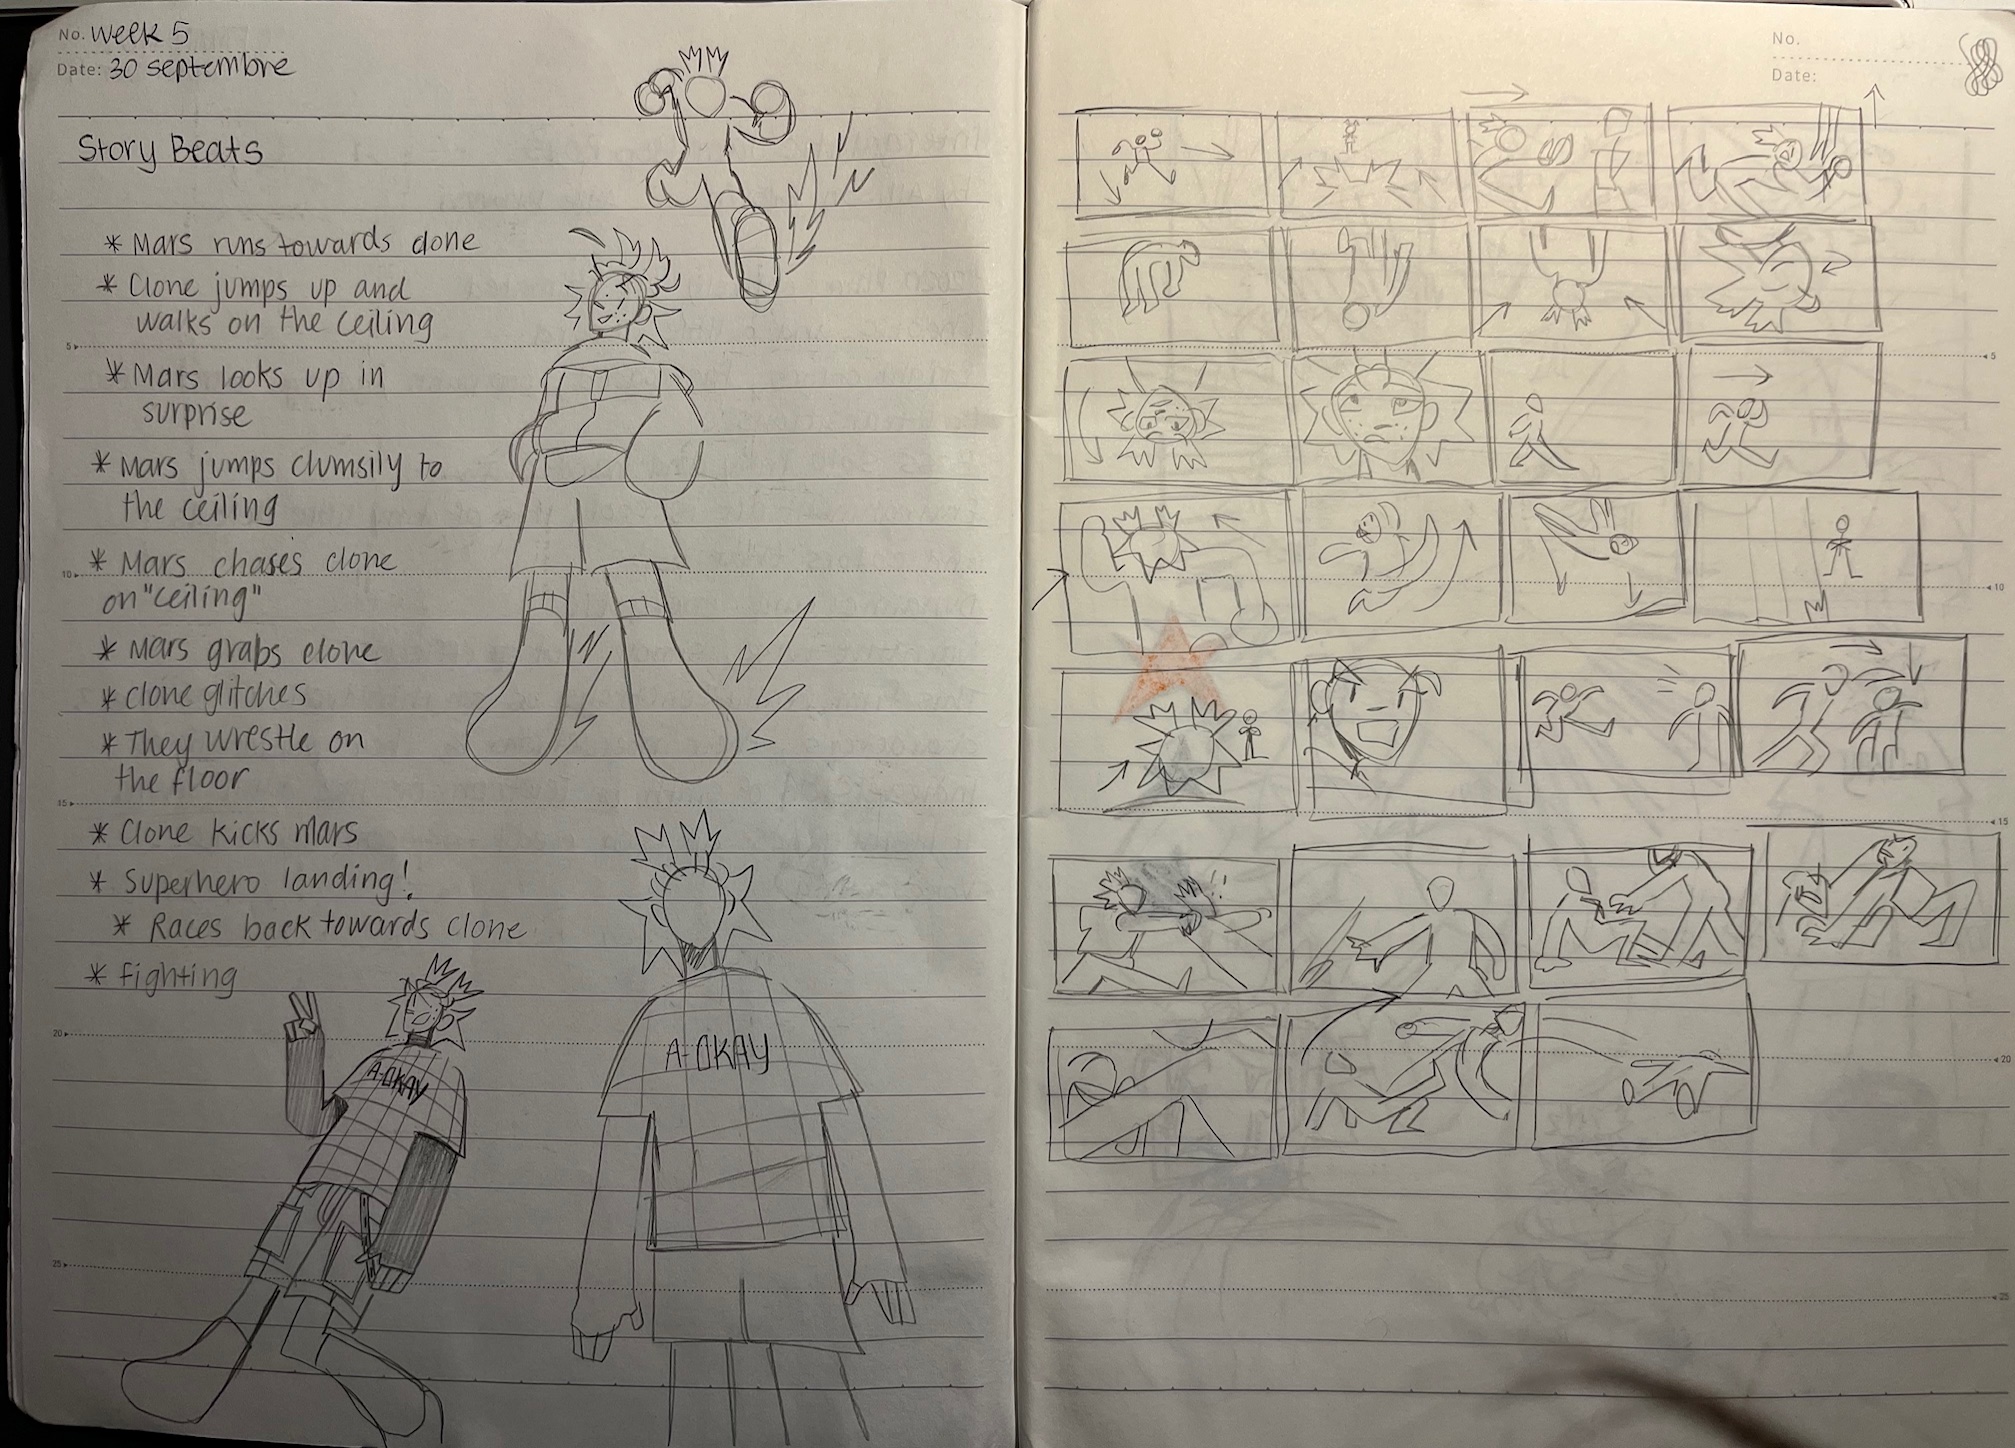 No. Week 5
Date: 30 septembre
Story Beats
* Mars runs towards clone
* Clone jumps up and
walks on the ceiling
* Mars looks up in
surprise
* Mars jumps clumsily to
the ceiling
* Mars chases clone
on "ceiling"
* Mars grabs clone
* clone glitches
* They wrestle on
the floor
* Clone kicks mars
* Superhero landing!
* Races back towards clone
* fighting
A-OKAY
A-OKAY
5
10
15
20
25
No.
Date:
5
10
15
20
25